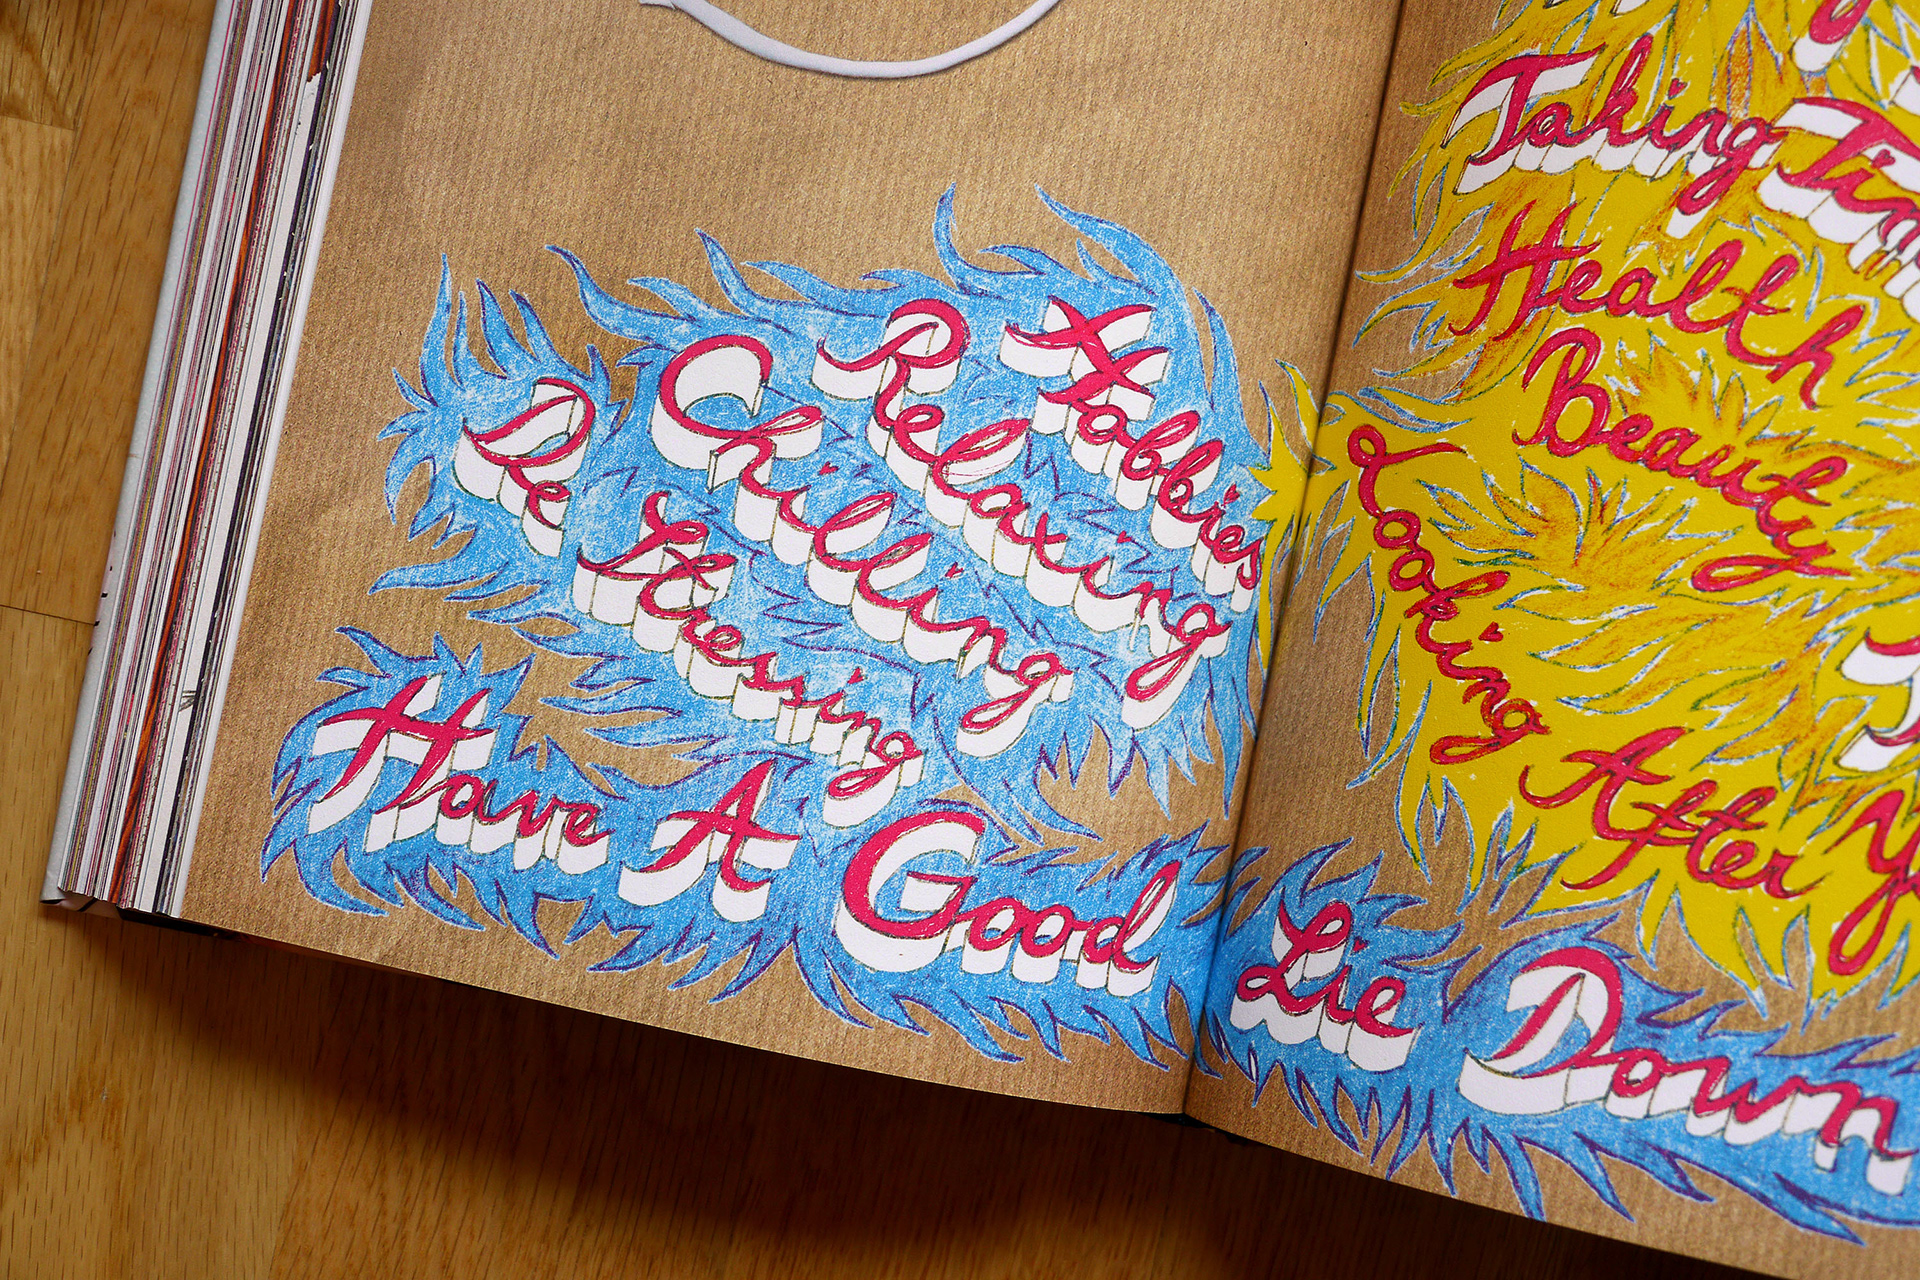 Hobbies
Relaxing
Chilling
De Stressing
Have A Good Lie Down
Taking
Health
Beauty
Looking After